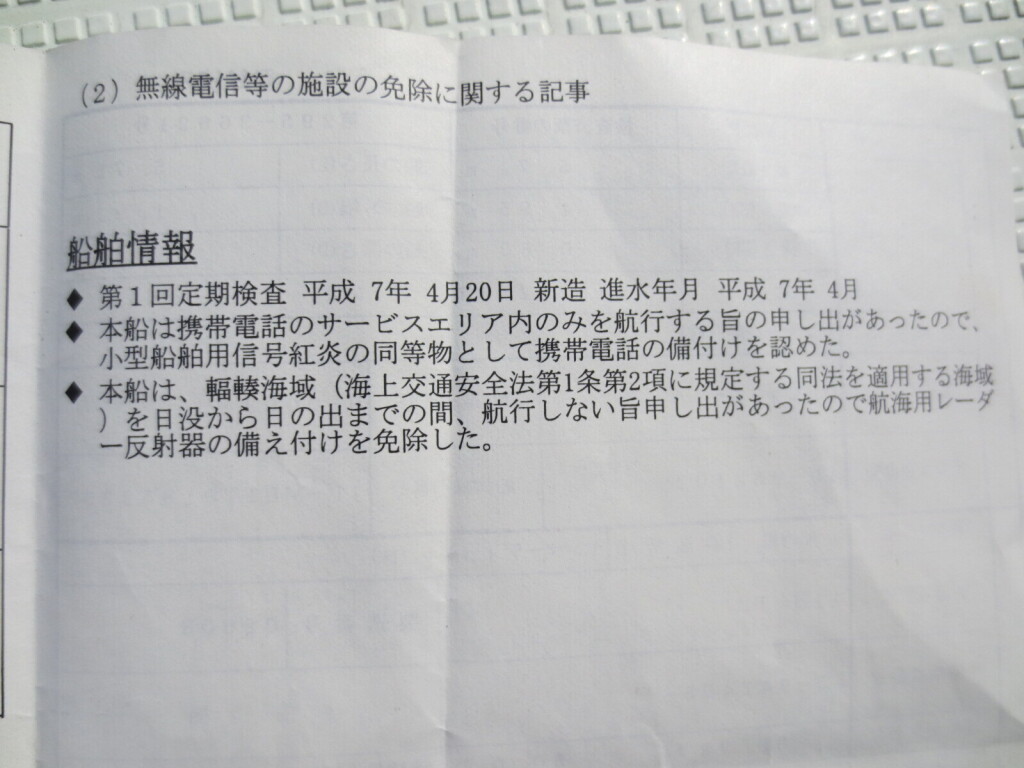 (2) 無線電信等の施設の免除に関する記事
船舶情報
◆ 第1回定期検査 平成 7年 4月20日 新造 進水年月 平成 7年 4月
◆ 本船は携帯電話のサービスエリア内のみを航行する旨の申し出があったので、
小型船舶用信号紅炎の同等物として携帯電話の備付けを認めた。
◆ 本船は、輻輳海域（海上交通安全法第1条第2項に規定する同法を適用する海域
）を日没から日の出までの間、航行しない旨申し出があったので航海用レーダ
ー反射器の備え付けを免除した。